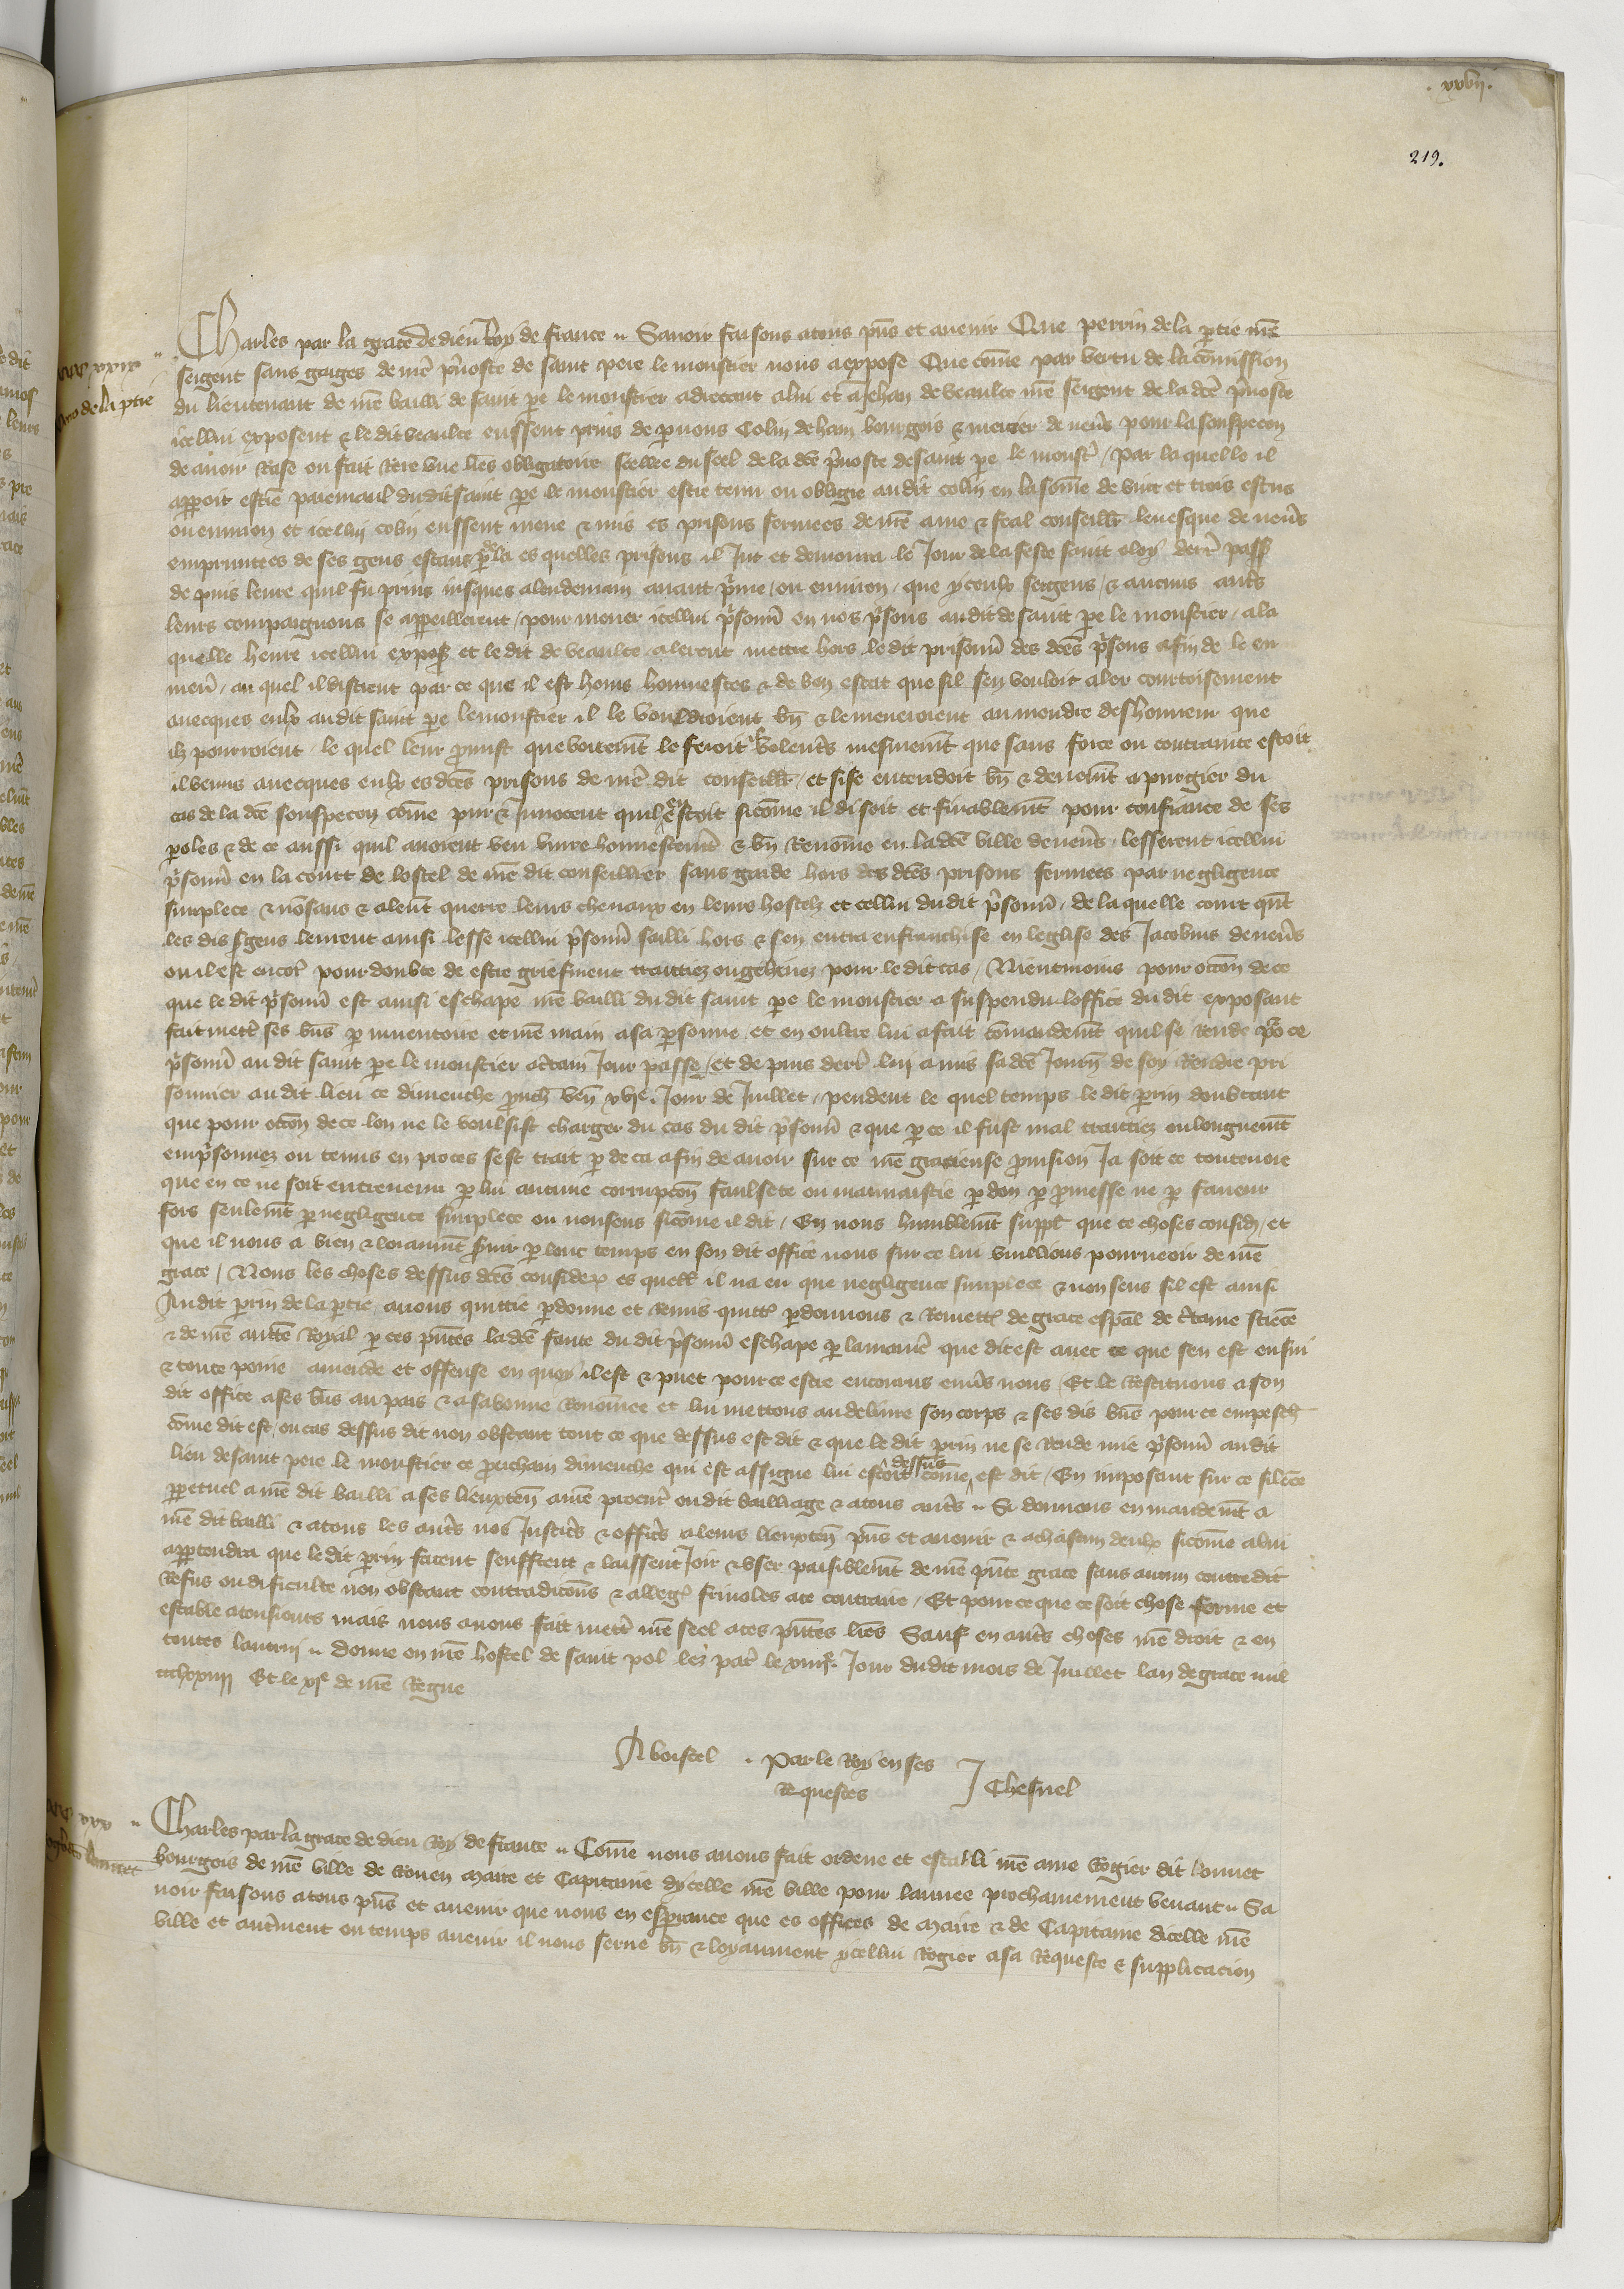 . xxvij.
219.
Charles par la grace de dieu Roy de france .. Savoir faisons a tous pñs et avenir Que perrin de la ptie nr̃e
sergent sans gaiges de nr̃e pʳvoste de saint pere le moustier nous a expose Que cõme par vertu de la cõmission
du lieutenant de nr̃e bailli de saint pe le moustier adrecant a lui et a Jehan de veaulce nr̃e sergent de la dc̃e pʳvoste
icellui exposent & le dit veaulce eussent prins de par nous Colin de ham bourgois & mercier de nevrs̃ pour la souspecon
de avoir Rase ou fait Rere une lr̃es obligatoire scellee du seel de la dc̃e pʳvoste de saint pe le moustʳ / par la quelle il
apparoit estiẽ paiemaul du dit saint pe le moustier estre tenu ou obligie au dit colin en la sõme de vint et trois escus
ou environ et icellui colin eussent mene & mis es prisons fermees de nr̃e ame & feal conseillr̃ levesque de nevrs̃
empruntees de ses gens estans pʳ la es quelles prisons il Jut et demoura le Jour de la feste saint eloy derr̃ pass
de puis leure quil fu prins jusques alendemain avant pʳme / ou environ / que yceulx sergens / & aucuns autr̃s
leurs compaignons se appareillerent / pour mener icellui pʳsonñ en nos pʳsons au dit de saint pe le moustier / a la
quelle heure icellui expost̃ et le dit de veaulce alerent mettre hors le dit prisonñ des dc̃es pʳsons afin de le en
menr̃ / au quel il disrent par ce que il est homs honnestes & de bon estat que sil sen vouloit aler courtoisement
avecques eulx au dit saint pe le moustier il le vouldroient bñ & le meneroient au mendre deshonneur que
ilz pourroient / le quel leur pʳmist que voiremt̃ le feroit il volentr̃s mesmemt̃ que sans force ou contrainte estoit
il venus avecques eulx es dc̃es prisons de nr̃e dit conseillr̃ / et si se entendoit bñ & devemt̃ a purgier du
cas de la dc̃e souspecon cõme pur & Innocent quil en estoit sicõme il disoit et finablemt̃ pour confiance de ses
poles & de ce aussi quil avoient veu vivre honnestemt̃ & bñ Renõme en la dc̃e ville de nevrs̃ / lesserent icellui
pʳsonñ en la court de lostel de nr̃e dit conseillier sans garde hors des dc̃es prisons fermees par negligence
simplece & nõsans & alerẽt querre leurs chevaux en leurs hostelz et cellui du dit pʳsonñ / de la quelle court qñt
les dis sgens leurent ainsi lesse icellui pʳsonñ sailli hors & sen entra en franchise en leglise des Jacobins de nevrs̃
ou il est encorʳ pour doubte de estre griefment traittiez ou gehinez pour le dit cas / Nientmoins pour occõn de ce
que le dit pʳsonñ est ainsi eschape nr̃e bailli du dit saint pe le moustier a suspendu loffice du dit exposant
fait mettʳ ses bñs par inventoire et nr̃e main a sa personne / et en oultre lui a fait cõmandemt̃ quil se Rende pour ce
pʳsonñ au dit saint pe le moustier a certain Jour passe / et de puis derr̃ lui a mis sa dc̃e Journ̄ de soy Rendre pri
sonnier au dit lieu ce dimenche pʳuch̄ ven̄ xvjᵉ. Jour de Juillet / pendent le quel temps le dit perrin doubtant
que pour occõn de ce lon ne le voulsist charger du cas du dit pʳsonñ & que par ce il fust mal traittiez ou longuemt̃
empʳsonnez ou tenus en proces sest trait par deca afin de avoir sur ce nr̃e gracieuse pʳvision Ja soit ce toutevoie
que en ce ne soit entrevenu par lui aucune corrupcõn faulsete ou mauvaistie par don par pʳmesse ne par faveur
fors seulemt̃ par negligence simplece ou nonsens sicõme il dit / En nous humblemt̃ supplt̃ que ce choses considr̃ / et
que il nous a bien & loiaumt̃ servir par lonc temps en son dit office nous sur ce lui vueillons pourveoir de nr̃e
grace / Nous les choses dessus dc̃es considerr̃ es quell̃ il na eu que negligence simplece & nonsens sil est ainsi
Au dit perrin de la ptie avons quittie pardonne et Remis quittʳ pardonnons & Remettʳ de grace espãl de cr̃taine sciẽce
& de nr̃e auctẽ Royal par ces pñtes la dc̃e faute du dit pʳsonñ eschape par la maniẽ que dit est avec ce que sen est ensui
& toute poine amende et offense en quoy il est & puet pour ce estre encourus envrs̃ nous / Et le Restituons a son
dit office a ses bñs au pais & a sa bonne Renõmee et lui mettons au delivre son corps & ses dis bñs pour ce empesch
cõme dit est / ou cas dessus dit non obstant tout ce que dessus est dit & que le dit perrin ne se Rende mie pʳsonñ au dit
lieu de saint pere le moustier ce prochain dimenche qui est assigne lui estoit cõme dessus est dit / En imposant sur ce silẽce
perpetuel a nr̃e dit bailli a ses lieuxten̄ a nr̃e procurʳ ou dit bailliage & a tous autr̃s .. Si donnons en mandemt̃ a
nr̃e dit bailli & a tous les autr̃s nos Justicr̃s & officr̃s a leurs lieuxten̄ pñs et avenir & a chascun deulx sicõme a lui
appartendra que le dit perrin facent seuffrent & laissent Joir & user paisiblemt̃ de nr̃e pñte grace sans aucun contredit
Refus ou dificulte non obstant contradicõns & allegʳ frivoles a ce contraire / Et pour ce que ce soit chose ferme et
estable a tousjours mais nous avons fait mettʳ nr̃e seel a ces pñtes lr̃es Sauf en autr̃s choses nr̃e droit & en
toutes lautrui .. Donne en nr̃e hostel de saint pol lez parʳ le xiiijᵉ. Jour du dit mois de Juillet lan de grace mil
ccclxxiiij Et le xjᵉ de nr̃e Regne
A boistel . Par le Roy en ses
Requestes J Chesnel
xxx
Charles par la grace de dieu Roy de france .. Cõme nous avons fait ordene et establi nr̃e ame Rogier dit bonnet
bourgois de nr̃e ville de Rouen maire et Capitaine dycelle nr̃e ville pour lannee prochainement venant .. Sa
voir faisons a tous pñs et avenir que nous en esperance que es offices de maire & de Capitaine dicelle nr̃e
ville et autrement ou temps avenir il nous serve bñ & loyaument ycellui Rogier a sa Requeste & supplicacion